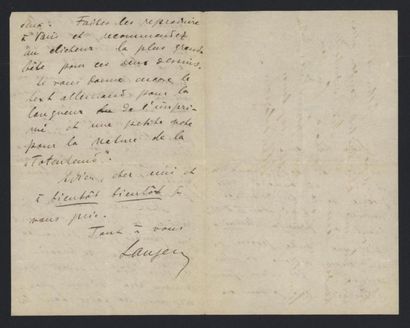 deux. Faites les reproduire
à Paris et recommandez
au clicheur la plus grande
hâte pour ces deux dessins.
Je vous donne encore le
text allemand pour la
longueur de l'impri-
mé et une petite note
pour la nature de la
"Totentanz".
Adieu, cher ami et
à bientôt bientôt je
vous prie.
Tout à vous
Langen